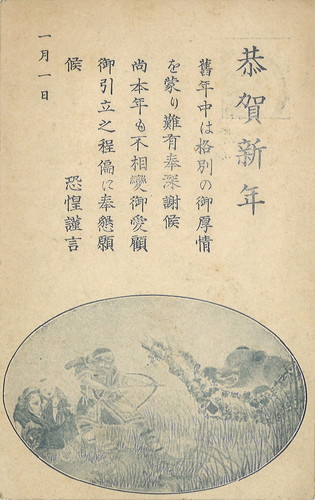 恭賀新年
舊年中は格別の御厚情
を蒙り難有奉深謝候
尚本年も不相變御愛顧
御引立之程偏に奉懇願
候　恐惶謹言
一月一日